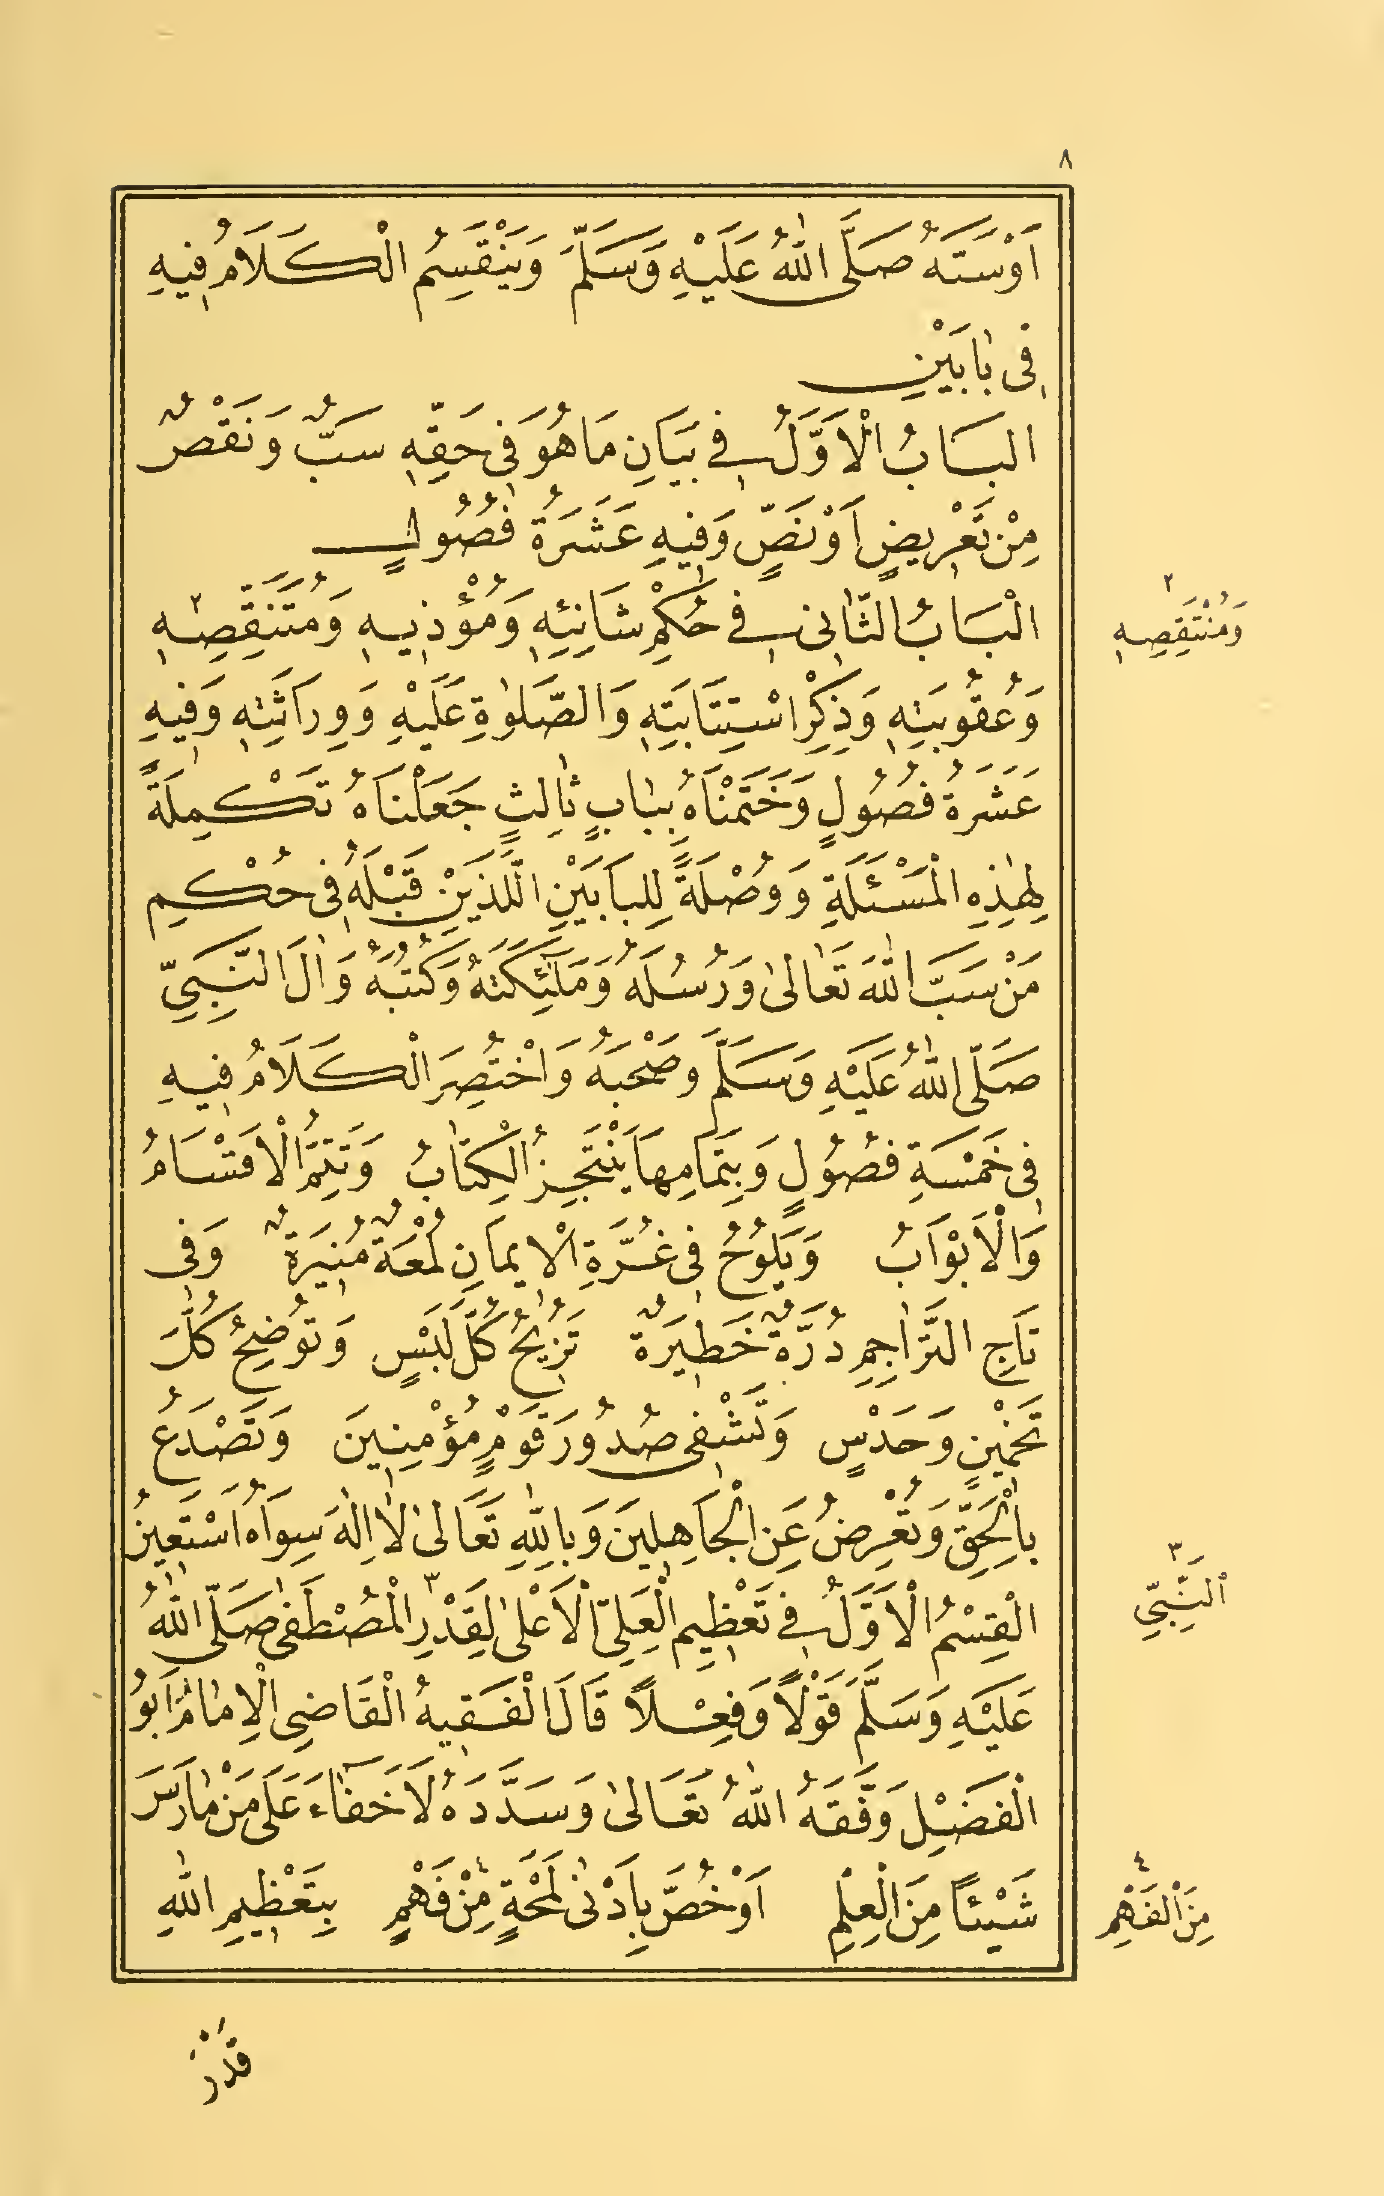 ٨
اَوْ سَبَّهُ صَلَّى اللهُ عَلَيْهِ وَسَلَّمَ وَيَنْقَسِمُ الْكَلَامُ فِيهِ
فِى بَابَيْنِ
الْبَابُ الْاَوَّلُ فِى بَيَانِ مَا هُوَ فِى حَقِّهِ سَبٌّ وَنَقْصٌ
مِنْ تَعْرِيضٍ اَوْ نَصٍّ وَفِيهِ عَشَرَةُ فُصُولٍ
الْبَابُ الثَّانِى فِى حُكْمِ شَانِئِهِ وَمُؤْذِيهِ وَمُتَنَقِّصِهِ ٢
وَعُقُوبَتِهِ وَذِكْرِ اسْتِتَابَتِهِ وَالصَّلٰوةِ عَلَيْهِ وَوِرَاثَتِهِ وَفِيهِ
عَشَرَةُ فُصُولٍ وَخَتَمْنَاهُ بِبَابٍ ثَالِثٍ جَعَلْنَاهُ تَكْمِلَةً
لِهٰذِهِ الْمَسْئَلَةِ وَوُصْلَةً لِلْبَابَيْنِ اللَّذَيْنِ قَبْلَهُ فِى حُكْمِ
مَنْ سَبَّ اللهَ تَعَالٰى وَرُسُلَهُ وَمَلٰئِكَتَهُ وَكُتُبَهُ وَاٰلَ النَّبِىِّ
صَلَّى اللهُ عَلَيْهِ وَسَلَّمَ وَصَحْبَهُ وَاخْتُصِرَ الْكَلَامُ فِيهِ
فِى خَمْسَةِ فُصُولٍ وَبِتَمَامِهَا يَنْتَجِزُ الْكِتَابُ وَتَتِمُّ الْاَقْسَامُ
وَالْاَبْوَابُ وَيَلُوحُ فِى غُرَّةِ الْاِيمَانِ لُمْعَةٌ مُنِيرَةٌ وَفِى
تَاجِ التَّرَاجِمِ دُرَّةٌ خَطِيرَةٌ تُزِيحُ كُلَّ لَبْسٍ وَتُوضِحُ كُلَّ
تَخْمِينٍ وَحَدْسٍ وَتَشْفِى صُدُورَ قَوْمٍ مُؤْمِنِينَ وَتَصْدَعُ
بِالْحَقِّ وَتُعْرِضُ عَنِ الْجَاهِلِينَ وَبِاللهِ تَعَالٰى لَا اِلٰهَ سِوَاهُ اَسْتَعِينُ
الْقِسْمُ الْاَوَّلُ فِى تَعْظِيمِ الْعَلِىِّ الْاَعْلٰى لِقَدْرِ ٣ الْمُصْطَفٰى صَلَّى اللهُ
عَلَيْهِ وَسَلَّمَ قَوْلًا وَفِعْلًا قَالَ الْفَقِيهُ الْقَاضِى الْاِمَامُ اَبُو
الْفَضْلِ وَفَّقَهُ اللهُ تَعَالٰى وَسَدَّدَهُ لَا خَفَاءَ عَلَى مَنْ مَارَسَ
شَيْئًا مِنَ الْعِلْمِ اَوْ خُصَّ بِاَدْنٰى لَمْحَةٍ ٤ مِنْ فَهْمٍ بِتَعْظِيمِ اللهِ
قَدْرَ
٢
وَمُنْتَقِصِهِ
٣
اَلنَّبِىِّ
٤
مِنَ الْفَهْمِ